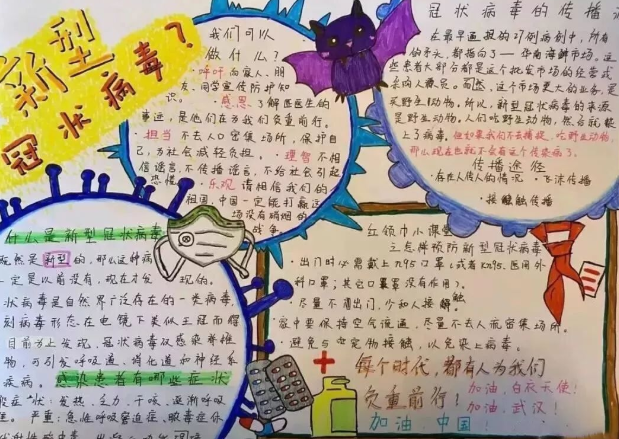 新型
冠状病毒?
我们可以
做什么?
·呼吁向家人、朋
友、同学宣传防护知
识。·感恩 了解医医生的
事迹,是他们在为我们负重前行。
·担当 不去人口密集场所,保护自
己,为社会减轻负担。·理智 不相
信谣言,不传播谣言,不给社会引起
恐慌。·乐观 请相信我们的
祖国,中国一定能打赢这
场没有硝烟的
战争。
冠状病毒的传播
在最早通报的27例病例中,所有
的矛头,都指向了——华南海鲜市场。这
些患者大部分都是这个批发市场的经营或
采购人员。而然,这个市场更大的业务,是
买野生动物。所以,新型冠状病毒的来源
是野生动物,人们吃野生动物,然后就染
上了病毒。但如果我们不去捕捉、吃野生动物,
那么现在也就不会有这个传染病了。
传播途径
·存在人传人的情况 ·飞沫传播
·接触传播
什么是新型冠状病毒
既然是新型的,那么这种病
一定是以前没有,现在才发现的。
状病毒是自然界广泛存在的一类病毒,
刻病毒形态在电镜下类似王冠而
目前为止发现,冠状病毒仅感染脊椎
物,可引发呼吸道、消化道和神经系
疾病。感染患者有哪些症状
症状:发热、乏力、干咳、逐渐呼吸
严重:急性呼吸窘迫症、脓毒症休
红领巾小课堂
三点种预防新型冠状病毒
·出门时必需戴上N95口罩(或者KN95、医用外
科口罩;其它口罩没有作用)。
·尽量不需出门,少和人接触
家中要保持空气流通,尽量不去人流密集场所。
·避免与宠物接触,以免染上病毒。
每个时代,都有人为我们
负重前行!
加油,白衣天使!
加油,武汉!
加油,中国!